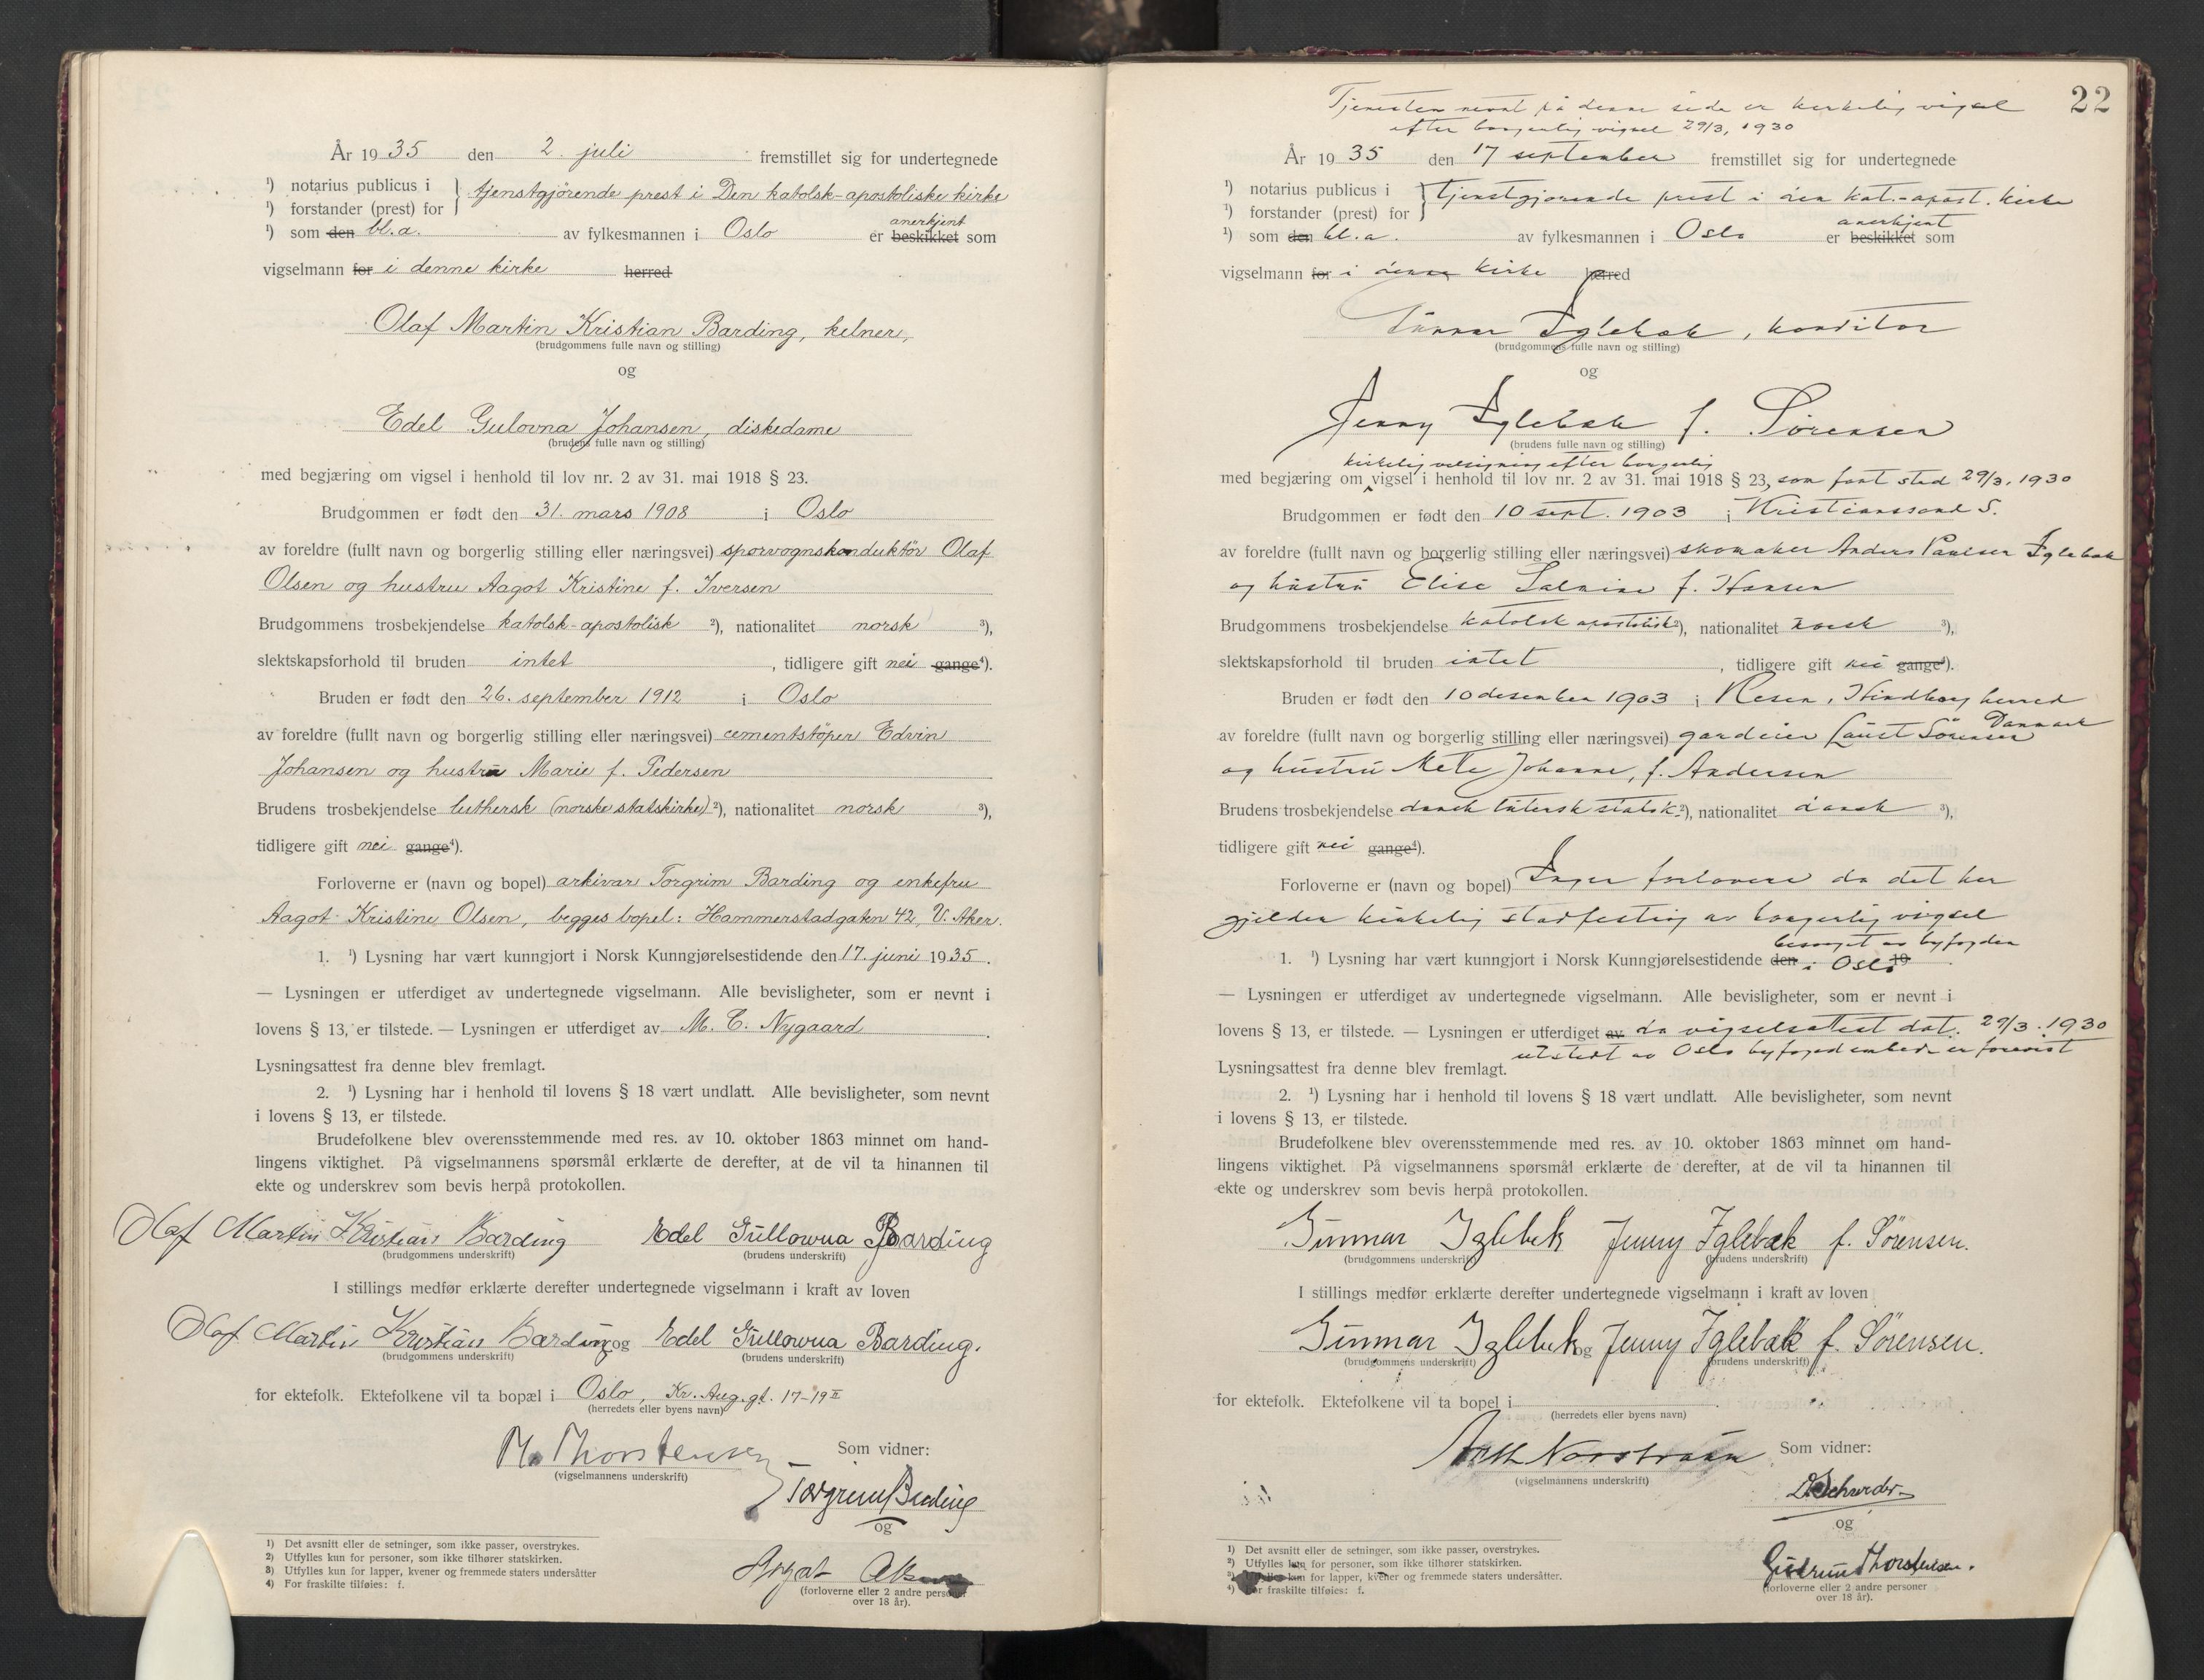 År 1935 den 2. juli fremstillet sig for undertegnede
¹) notarius publicus i
¹) forstander (prest) for } tjenstgjørende prest i Den katolsk-apostoliske kirke
anerkjent
¹) som den bl.a. av fylkesmannen i Oslo er beskikket som
vigselmann for i denne kirke herred
Olaf Martin Kristian Barding, kelner,
(brudgommens fulle navn og stilling)
og
Edel Gulovna Johansen, diskedame
(brudens fulle navn og stilling)
med begjæring om vigsel i henhold til lov nr. 2 av 31. mai 1918 § 23.
Brudgommen er født den 31. mars 1908 i Oslo
av foreldre (fullt navn og borgerlig stilling eller næringsvei) sporvognskonduktör Olaf
Olsen og hustru Aagot Kristine f. Iversen
Brudgommens trosbekjendelse katolsk-apostolisk ²), nationalitet norsk ³),
slektskapsforhold til bruden intet , tidligere gift nei gange⁴).
Bruden er født den 26. september 1912 i Oslo
av foreldre (fullt navn og borgerlig stilling eller næringsvei) cementstöper Edvin
Johansen og hustru Marie f. Pedersen
Brudens trosbekjendelse luthersk (norske statskirke) ²), nationalitet norsk ³),
tidligere gift nei gange⁴).
Forloverne er (navn og bopel) arkivar Torgrim Barding og enkefru
Aagot Kristine Olsen, begges bopel: Hammerstadgaten 42, V. Aker.
1. ¹) Lysning har vært kunngjort i Norsk Kunngjørelsestidende den 17. juni 1935.
— Lysningen er utferdiget av undertegnede vigselmann. Alle bevisligheter, som er nevnt i
lovens § 13, er tilstede. — Lysningen er utferdiget av M. C. Nygaard .
Lysningsattest fra denne blev fremlagt.
2. ¹) Lysning har i henhold til lovens § 18 vært undlatt. Alle bevisligheter, som nevnt
i lovens § 13, er tilstede.
Brudefolkene blev overensstemmende med res. av 10. oktober 1863 minnet om hand-
lingens viktighet. På vigselmannens spørsmål erklærte de derefter, at de vil ta hinannen til
ekte og underskrev som bevis herpå protokollen.
Olaf Martin Kristian Barding Edel Gullowna Barding
(brudgommens underskrift) (brudens underskrift)
I stillings medfør erklærte derefter undertegnede vigselmann i kraft av loven
Olaf Martin Kristian Barding og Edel Gullowna Barding.
(brudgommens underskrift) (brudens underskrift)
for ektefolk. Ektefolkene vil ta bopæl i Oslo, Kr. Aug. gt. 17-19 II
(herredets eller byens navn)
M. Thorstensen Som vidner:
(vigselmannens underskrift)
Torgrim Barding
og
(forloverne eller 2 andre personer
over 18 år).
1) Det avsnitt eller de setninger, som ikke passer, overstrykes.
2) Utfylles kun for personer, som ikke tilhører statskirken.
3) Utfylles kun for lapper, kvener og fremmede staters undersåtter
4) For fraskilte tilføies: f.
22
Tjenesten nevnt på denne side er kirkelig vigsel
efter borgerlig vigsel 29/3, 1930
År 1935 den 17 september fremstillet sig for undertegnede
¹) notarius publicus i
¹) forstander (prest) for } tjenstgjørende prest i den kat.-apost. kirke
anerkjent
¹) som den bl.a. av fylkesmannen i Oslo er beskikket som
vigselmann for i denne kirke herred
Gunnar Iglebæk, konditor
(brudgommens fulle navn og stilling)
og
Jenny Iglebæk f. Sörensen
(brudens fulle navn og stilling)
kirkelig velsigning efter borgerlig
med begjæring om vigsel i henhold til lov nr. 2 av 31. mai 1918 § 23, som fant sted 29/3, 1930
Brudgommen er født den 10 sept. 1903 i Kristianssand S.
av foreldre (fullt navn og borgerlig stilling eller næringsvei) skomaker Anders Paulsen Iglebæk
og hustru Elise Salmine f. Hansen
Brudgommens trosbekjendelse katolsk apostolisk ²), nationalitet norsk ³),
slektskapsforhold til bruden intet , tidligere gift nei gange⁴).
Bruden er født den 10 desember 1903 i Resen, Hindborg herred
Danmark
av foreldre (fullt navn og borgerlig stilling eller næringsvei) gardeier Laust Sörensen
og hustru Mete Johanne, f. Andersen
Brudens trosbekjendelse dansk lutersk statsk. ²), nationalitet dansk ³),
tidligere gift nei gange⁴).
Forloverne er (navn og bopel) Ingen forlovere da det her
gjelder kirkelig stadfesting av borgerlig vigsel
besørget av byfogden
1. ¹) Lysning har vært kunngjort i Norsk Kunngjørelsestidende den i Oslo 19 .
— Lysningen er utferdiget av undertegnede vigselmann. Alle bevisligheter, som er nevnt i
lovens § 13, er tilstede. — Lysningen er utferdiget av da vigselsattest dat. 29/3. 1930
utstedt av Oslo byfogdembede er forevist
Lysningsattest fra denne blev fremlagt.
2. ¹) Lysning har i henhold til lovens § 18 vært undlatt. Alle bevisligheter, som nevnt
i lovens § 13, er tilstede.
Brudefolkene blev overensstemmende med res. av 10. oktober 1863 minnet om hand-
lingens viktighet. På vigselmannens spørsmål erklærte de derefter, at de vil ta hinannen til
ekte og underskrev som bevis herpå protokollen.
Gunnar Iglebæk Jenny Iglebæk f. Sørensen.
(brudgommens underskrift) (brudens underskrift)
I stillings medfør erklærte derefter undertegnede vigselmann i kraft av loven
Gunnar Iglebæk og Jenny Iglebæk f. Sørensen.
(brudgommens underskrift) (brudens underskrift)
for ektefolk. Ektefolkene vil ta bopel i .
(herredets eller byens navn)
Som vidner:
(vigselmannens underskrift)
og
Gudrun Thorstensen.
(forloverne eller 2 andre personer
over 18 år).
1) Det avsnitt eller de setninger, som ikke passer, overstrykes.
2) Utfylles kun for personer, som ikke tilhører statskirken.
3) Utfylles kun for lapper, kvener og fremmede staters undersåtter.
4) For fraskilte tilføies: f.